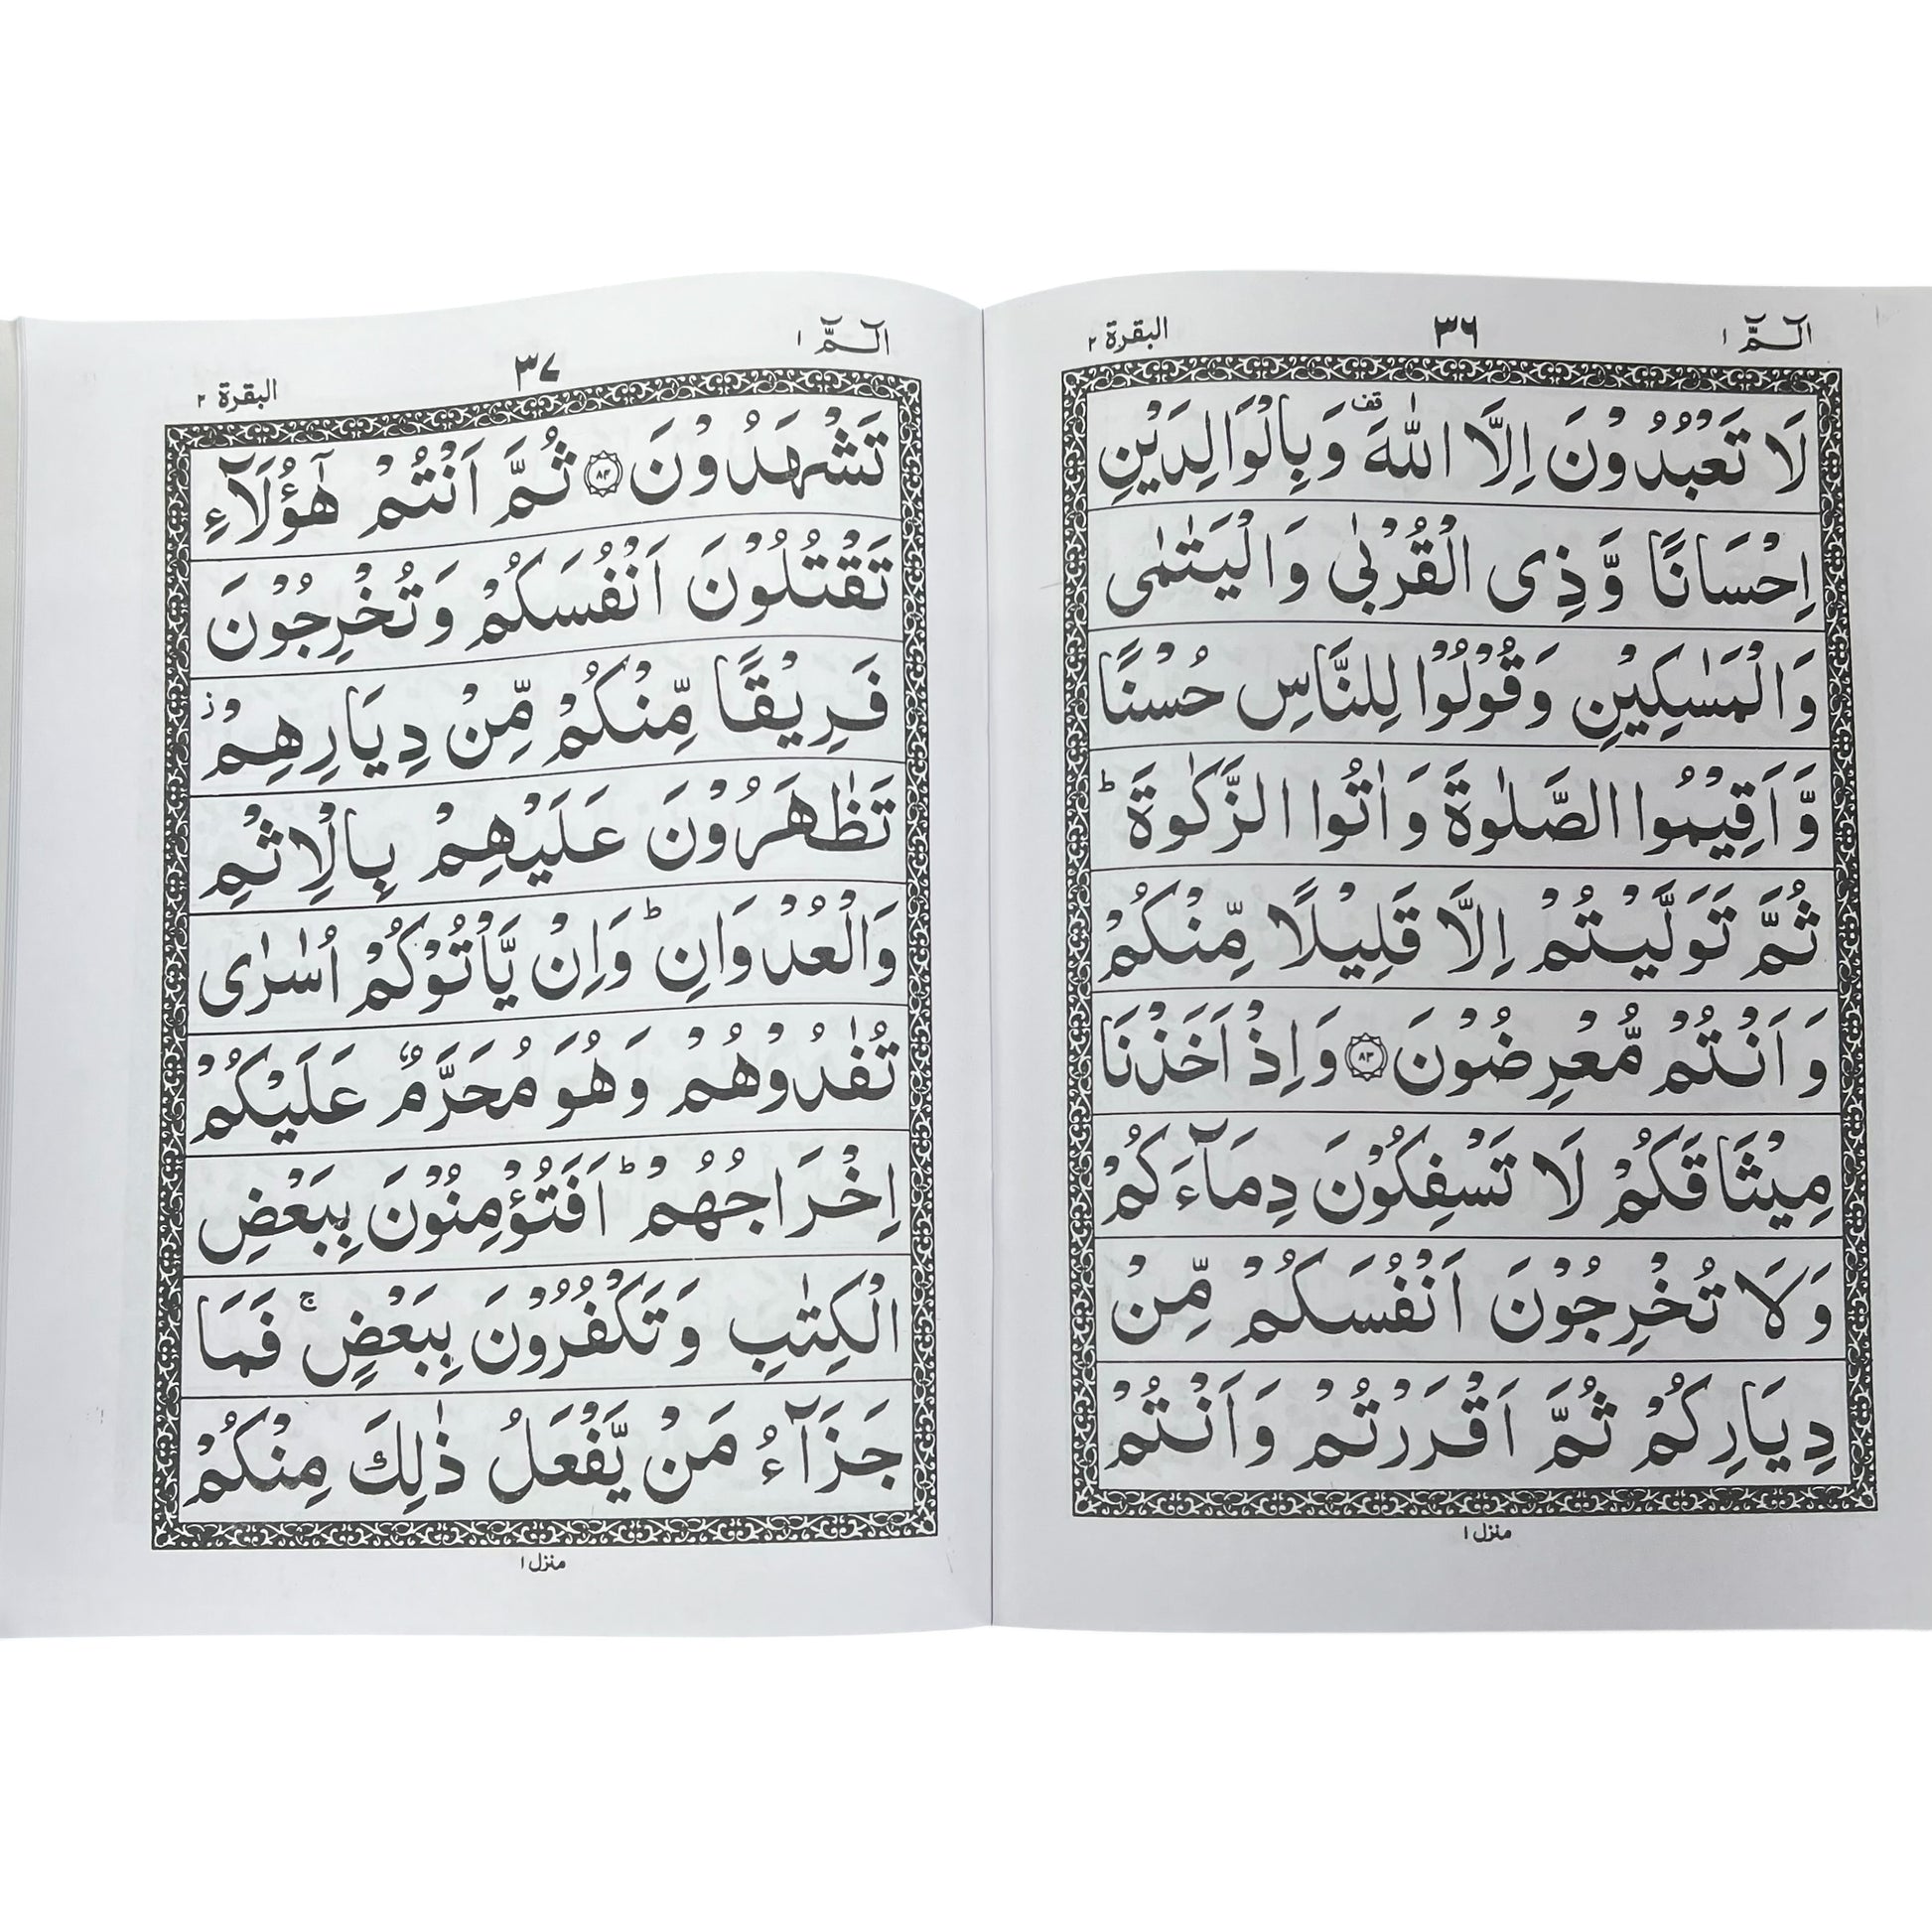 الٓمّٓ ١
٣٦
البقرة ٢
لَا تَعْبُدُوْنَ اِلَّا اللّٰهَ قف وَبِالْوَالِدَيْنِ
اِحْسَانًا وَّذِى الْقُرْبٰى وَالْيَتٰمٰى
وَالْمَسٰكِيْنِ وَقُوْلُوْا لِلنَّاسِ حُسْنًا
وَّاَقِيْمُوا الصَّلٰوةَ وَاٰتُوا الزَّكٰوةَ ؕ
ثُمَّ تَوَلَّيْتُمْ اِلَّا قَلِيْلًا مِّنْكُمْ
وَاَنْتُمْ مُّعْرِضُوْنَ ۝٨٣ وَاِذْ اَخَذْنَا
مِيْثَاقَكُمْ لَا تَسْفِكُوْنَ دِمَآءَكُمْ
وَلَا تُخْرِجُوْنَ اَنْفُسَكُمْ مِّنْ
دِيَارِكُمْ ثُمَّ اَقْرَرْتُمْ وَاَنْتُمْ
منزل ١
الٓمّٓ ١
٣٧
البقرة ٢
تَشْهَدُوْنَ ۝٨٤ ثُمَّ اَنْتُمْ هٰٓؤُلَآءِ
تَقْتُلُوْنَ اَنْفُسَكُمْ وَتُخْرِجُوْنَ
فَرِيْقًا مِّنْكُمْ مِّنْ دِيَارِهِمْ ز
تَظٰهَرُوْنَ عَلَيْهِمْ بِالْاِثْمِ
وَالْعُدْوَانِ ؕ وَاِنْ يَّاْتُوْكُمْ اُسٰرٰى
تُفٰدُوْهُمْ وَهُوَ مُحَرَّمٌ عَلَيْكُمْ
اِخْرَاجُهُمْ ؕ اَفَتُؤْمِنُوْنَ بِبَعْضِ
الْكِتٰبِ وَتَكْفُرُوْنَ بِبَعْضٍ ۚ فَمَا
جَزَآءُ مَنْ يَّفْعَلُ ذٰلِكَ مِنْكُمْ
منزل ١